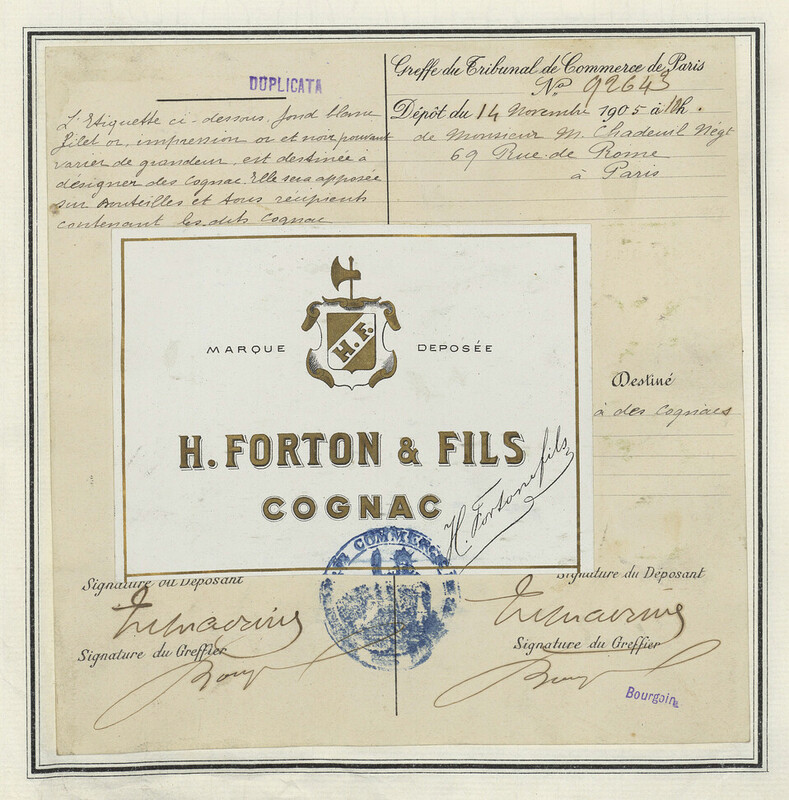 DUPLICATA
L'Etiquette ci-dessous, fond blanc
filet or, impression or et noir pouvant
varier de grandeur, est destinée à
désigner des Cognac. Elle sera apposée
sur Bouteilles et tous récipients
contenant les dits Cognac
Greffe du Tribunal de Commerce de Paris
No 92643
Dépôt du 14 Novembre 1905 à h.
de Monsieur M. Chadeuil Négt
69 Rue de Rome
à Paris
MARQUE DEPOSÉE
H.F.
H. FORTON & FILS
COGNAC
H. Forton & fils
Destiné
à des Cognacs
COMMERCE
Signature du Déposant
Signature du Greffier
Signature du Déposant
Signature du Greffier
Bourgoin